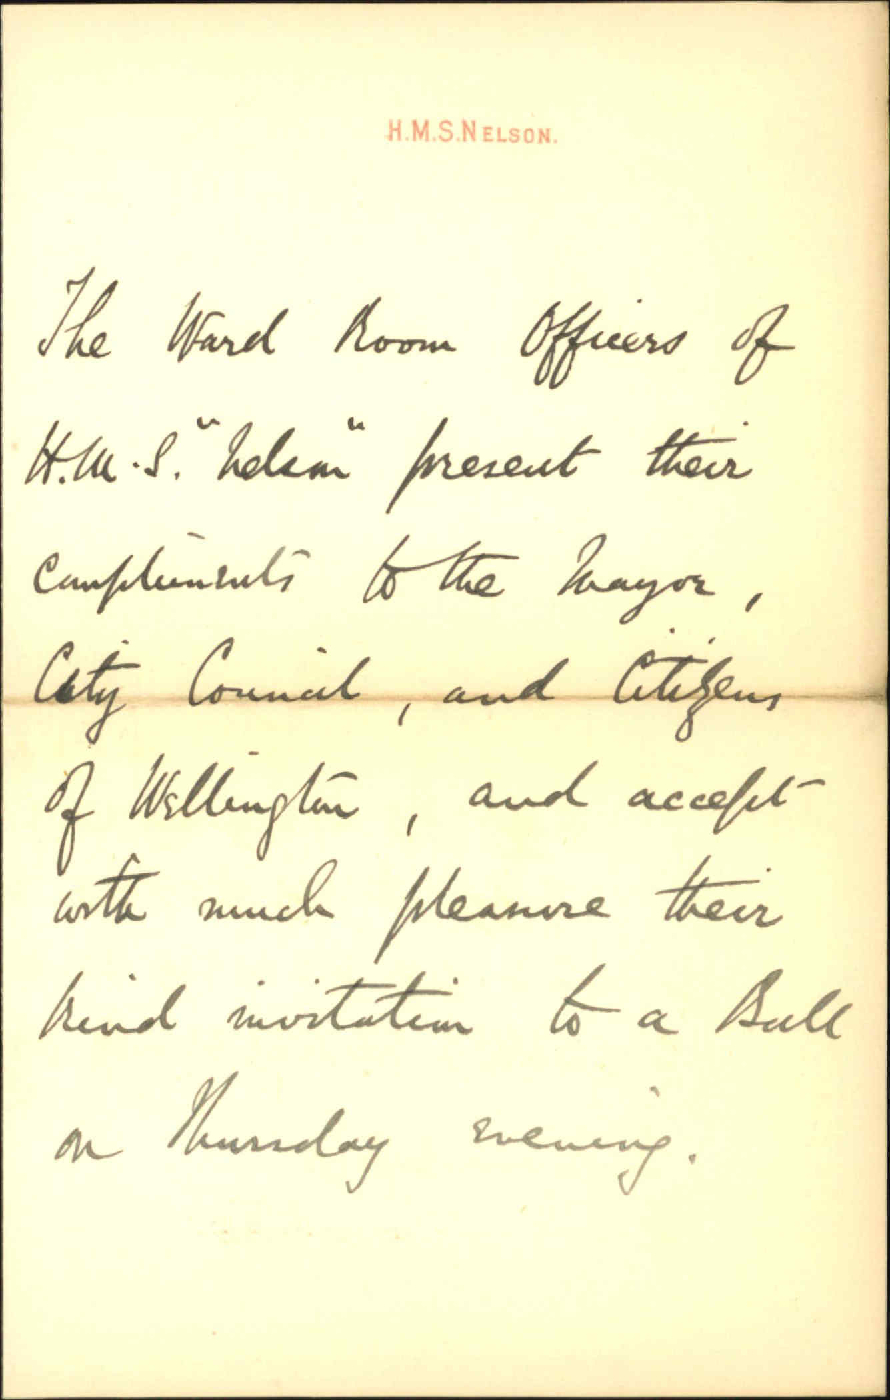 H.M.S.NELSON.
The Ward Room Officers of
H.M.S. "Nelson" present their
compliments to the Mayor,
City Council, and Citizens
of Wellington, and accept
with much pleasure their
kind invitation to a Ball
on Thursday evening.